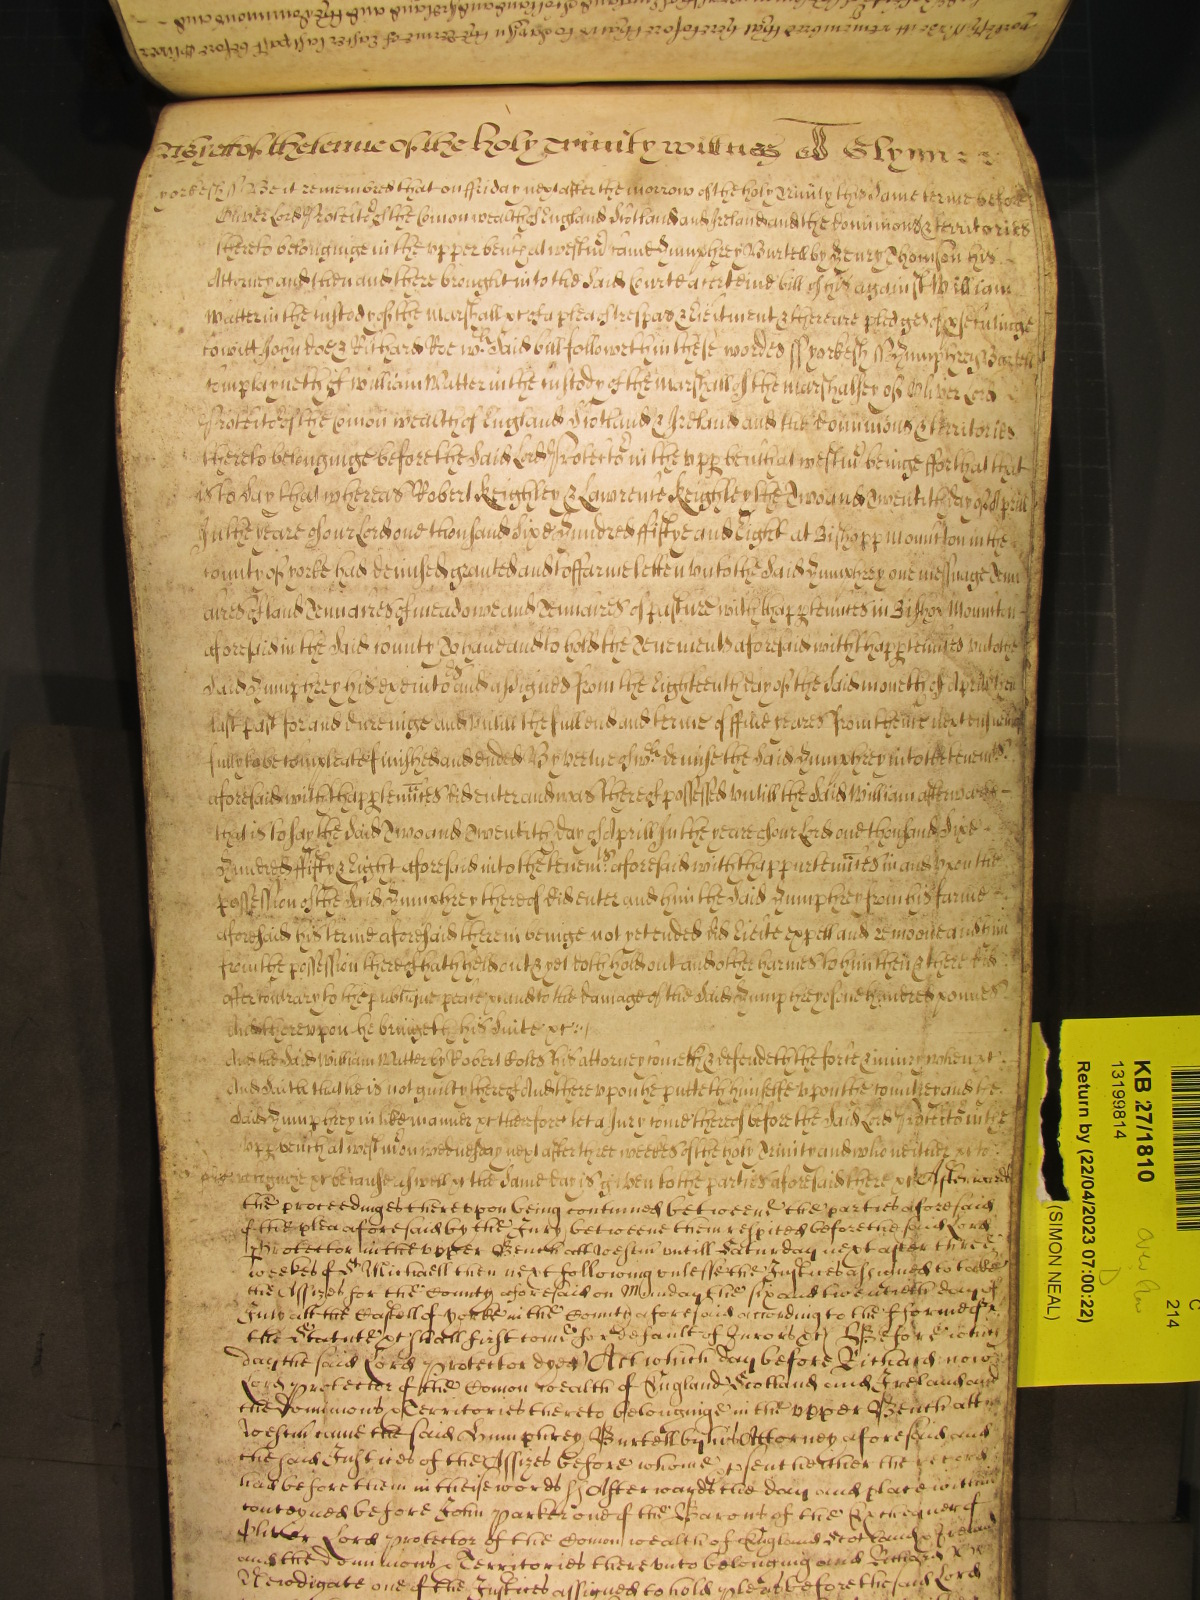 As yett of the terme of the holy Trinity witnes J Glynn
yorkesh ss Be it remembred that on ffriday next after the morrow of the holy Trinity this same terme before
Oliver Lord Protector of the Comon wealth of England Scotland and Ireland and the dominions & territories
thereto belonginge in the upper bench at westmr came Humphrey Burtell by Henry Thomson his
Attorney and then and there brought into the said Court a certeine bill of his against William
Watter in the custody of the Marshall &c of a plea of trespas & Eiectment & there are pledges of prosecutinge
to witt John doe & Richard Roe wch said bill followeth in these wordes ss yorkesh ss Humphrey Burtell
complayneth of William Watter in the custody of the Marshall of the marshalsey of Oliver Lord
Protector of the Comon wealth of England Scotland & Ireland and the dominions & territories
thereto belonginge before the said Lord Protector in the upp bench at westmr beinge ffor that that
is to say that whereas Robert Keighley & Lawrence Keighley the Two and Twentith day of Aprill
In the yeare of our Lord one thousand Sixe Hundred ffiftye and Eight at Bishopp Mounckton in the
County of yorke had demised granted and to ffarme letten unto the said Humphrey one messuage Tenn
acres of land Tenn acres of meadowe and Tenn acres of pasture with thapptennces in Bishop Mounckton
aforesaid in the said county To have and to hold the Tenements aforesaid with thapptennces unto the
said Humphrey his executors and assignes from the Eighteenth day of the said moneth of Aprill then
last past for and dureinge and untill the full end and terme of ffive yeares from thence next ensueinge
fully to be compleate & finished and ended By vertue of wch demise the said Humphrey into the tenemts
aforesaid with thapptennces did enter and was thereof possessed untill the said William afterwards
that is to say the said Two and Twentith day of Aprill In the yeare of our Lord one thousand Sixe
Hundred ffifty & Eight aforesaid into the tenemts aforesaid with thappurtennces in and upon the
possession of the said Humphrey thereof did enter and him the said Humphrey from his farme
aforesaid his terme aforesaid therein beinge not yet ended did Eiecte expell and remoove and him
from the possession thereof hath held out & yet doth hold out and other harmes to him then & there did
after contrary to the publique peace &c and to the damage of the said Humphrey of one hundred pounds
And thereupon he bringeth his suite &c
And the said William Watter by Robert Coles his attorney cometh & defendeth the force & iniury when &c
And saith that he is not guilty thereof And thereupon he putteth himselfe upon the country and the
said Humphrey in like manner &c therefore let a Jury come thereof before the said Lord Protector in the
upp bench at westmr on wednesday next after three weekes of the holy Trinity and who neither &c to
recognize &c because aswell &c the same day is given to the parties aforesaid there &c Afterwards
the proceedinges thereupon being continued betweene the parties aforesaid
of the plea aforesaid by the Jury betweene them respited before the said Lord
Protector in the upper Bench att Westm untill Saturday next after three
weekes of St Michaell then next following unlesse the Justices assigned to take
the Assizes for the County aforesaid on Monday the six and twentieth day of
July att the Castell of yorke in the County aforesaid according to the fforme of
the Statute &c shall first come for default of Jurors &c Before which
day the said Lord Protector dyed Att which day before Richard now
Lord Protector of the Comon wealth of England Scotland and Ireland and
the Dominions & Territories thereto belonginge in the upper Bench att
Westm came the said Humphrey Burtell by his Attorney aforesaid and
the said Justices of the Assizes before whome &c sent hether the record
had before them in theise words ss Afterwards the day and place within
conteyned before John Parker one of the Barons of the Exchequer of
Oliver Lord Protector of the Comon wealth of England Scotland & Ireland
and the Dominions & Territories thereunto belonging and Richard
Newdigate one of the Justices assigned to hold pleas before the said Lord
KB 27/1810
13199814
Return by (22/04/2023 07:00:22)
(SIMON NEAL)
214